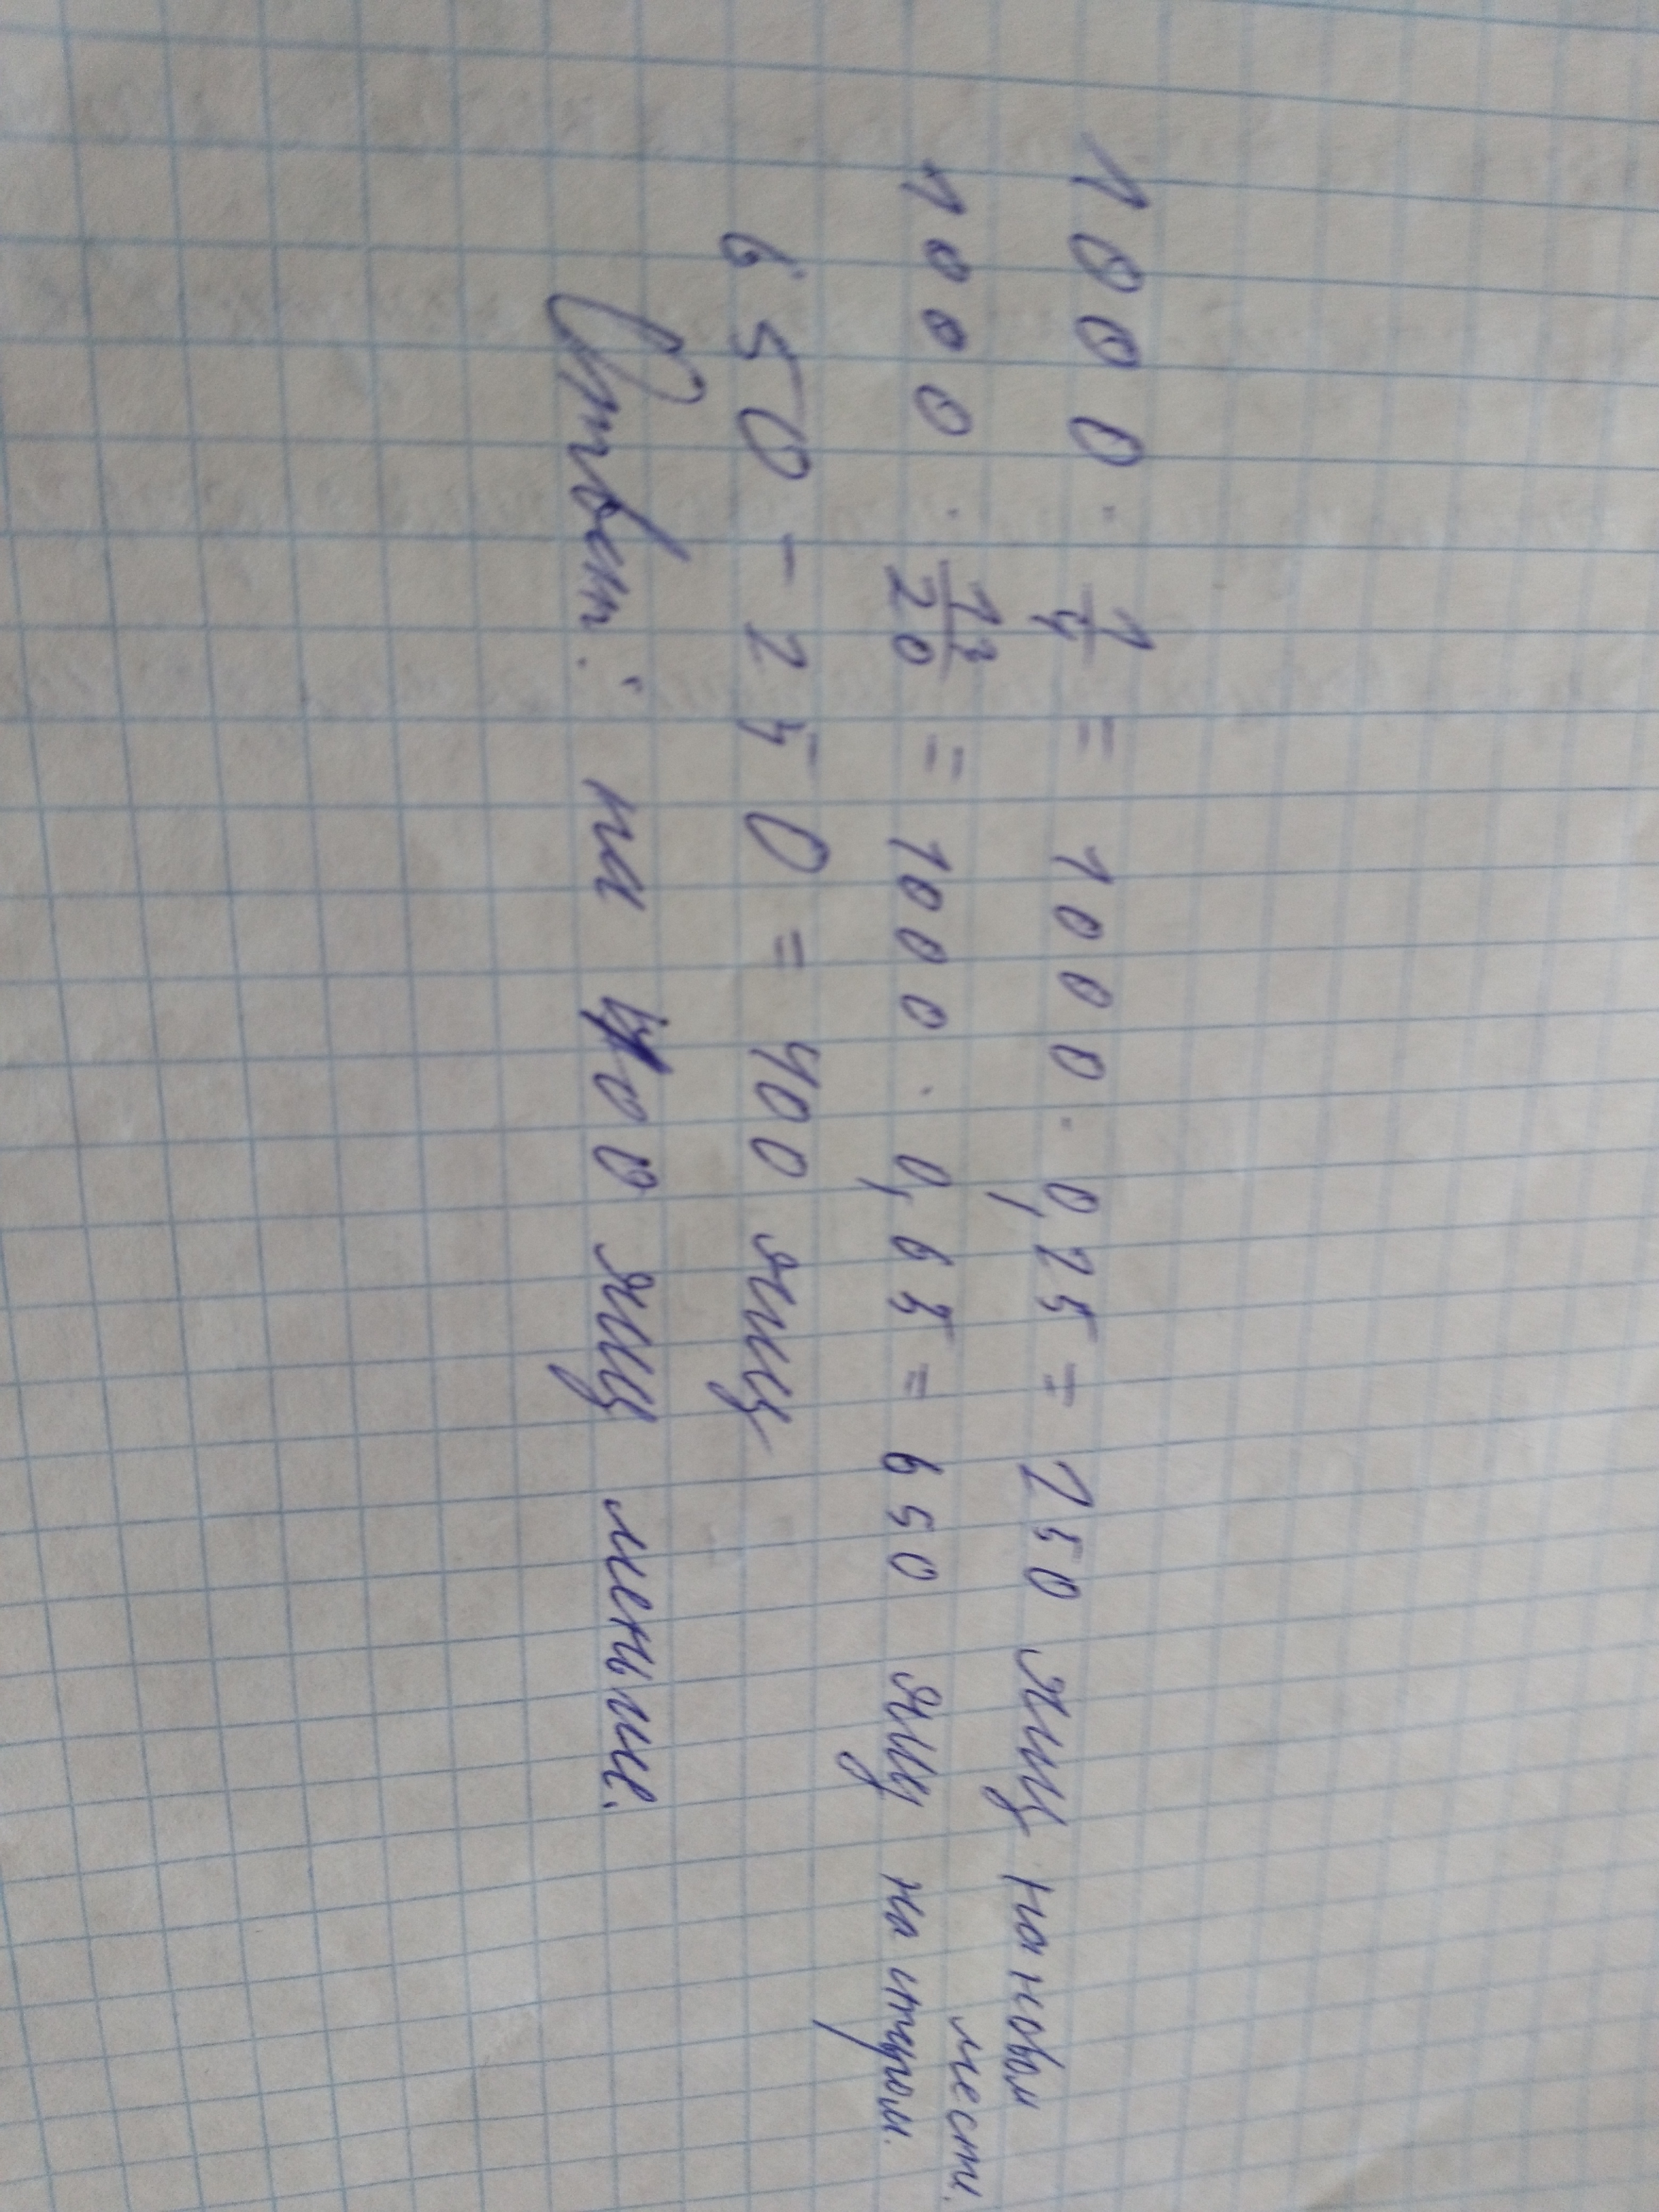 1000 · 1/4 = 1000 · 0,25 = 250 яиц на новом
месте.
1000 · 13/20 = 1000 · 0,65 = 650 яиц на старом.
650 - 250 = 400 яиц
Ответ: на 400 яиц меньше.